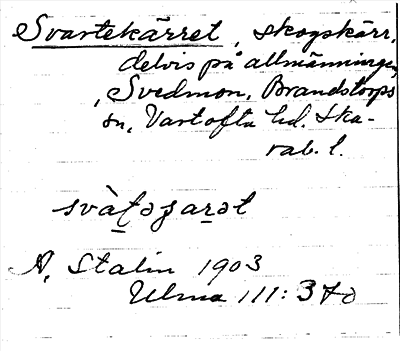 Svartekärret, skogskärr,
delvis på allmänningen,
, Svedmon, Brandstorps
sn, Vartofta hd. Ska-
rab. l.
svàt̠əʒar̠ət
A. Stalin 1903
Ulma 111: 370